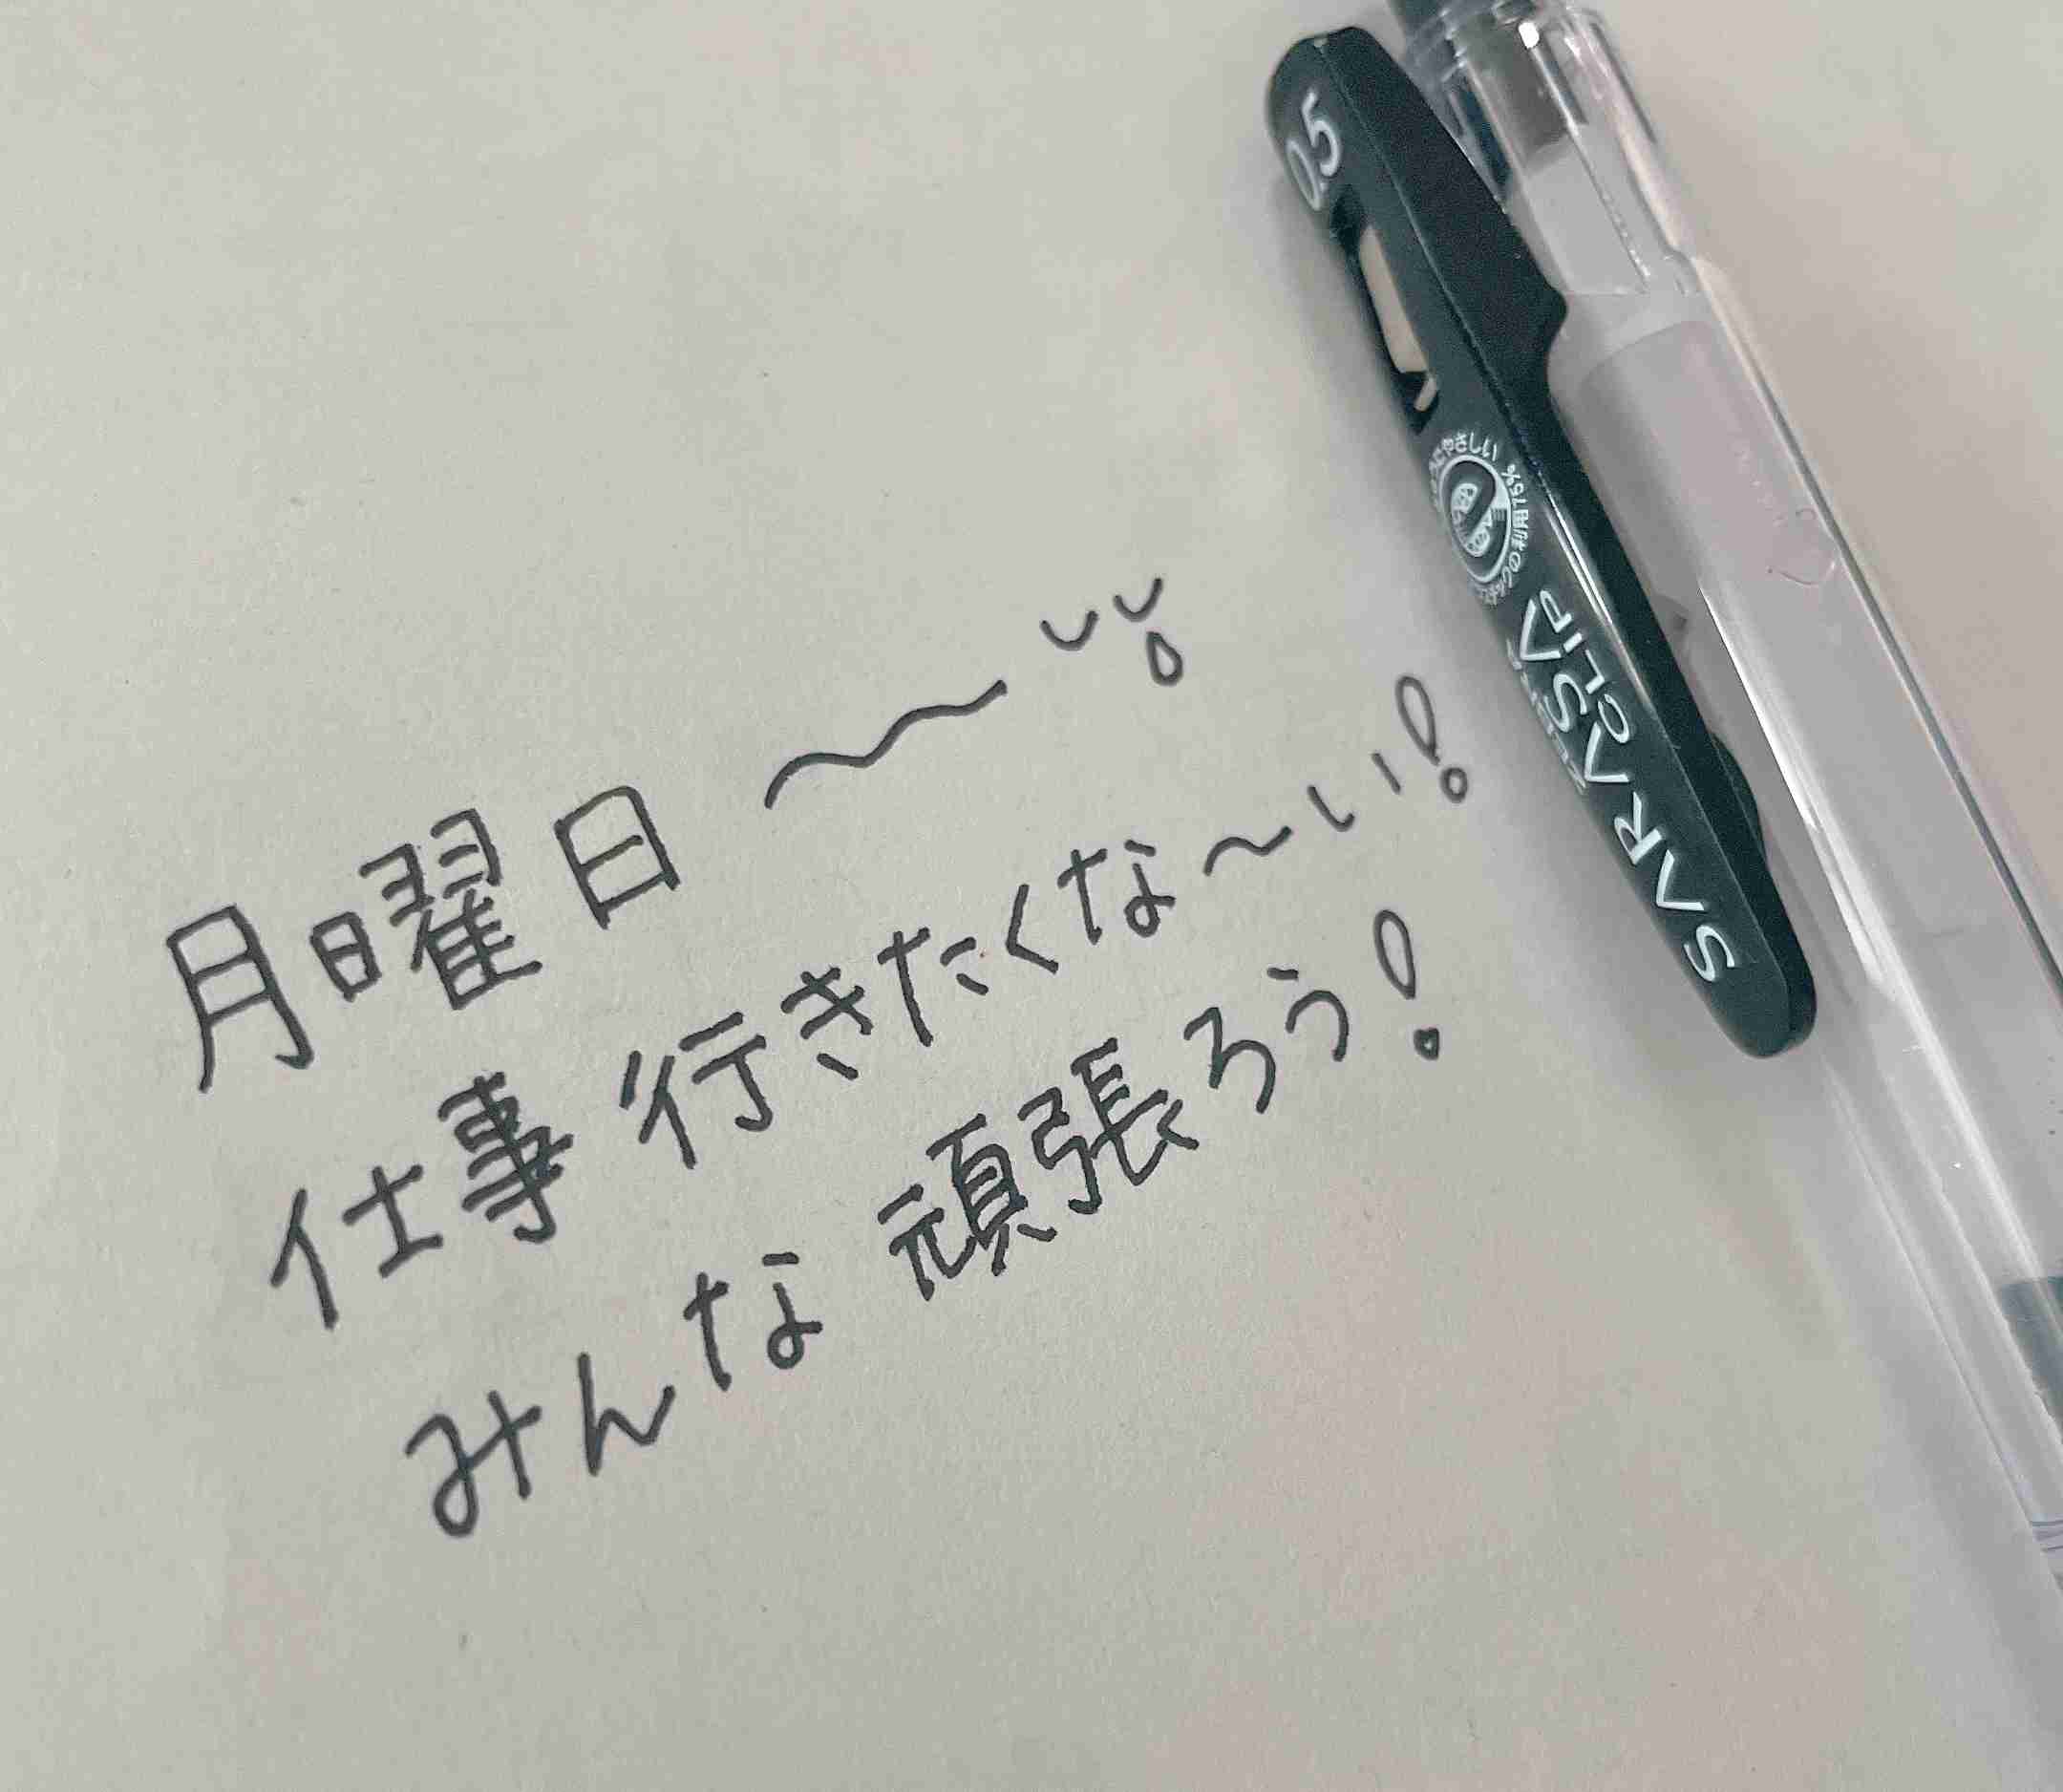 月曜日〜
仕事行きたくな〜い!
みんな頑張ろう!
0.5
やさしい
75%
SARASA
CLIP